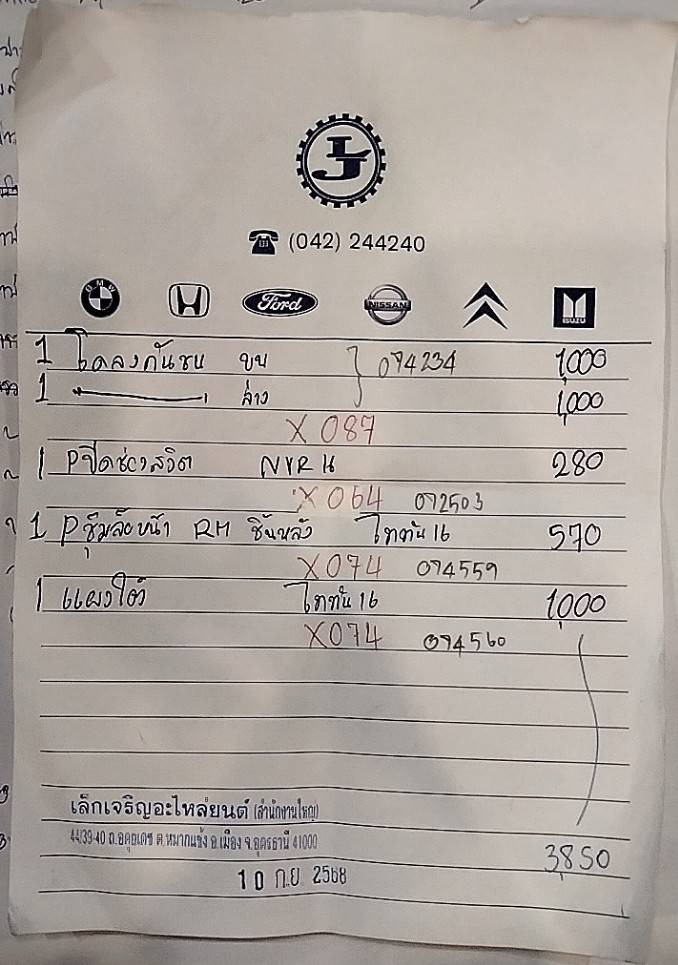 LJ
(042) 244240
BMW Ford NISSAN ISUZU
1 โครงกันชน บน 074234 1,000
1 ล่าง 1,000
X 087
1 Pปิดช่วงสวิต NVR 16 280
X 064 072503
1 Pซุ้มล้อหน้า RH ชิ้นหลัง ไททัน 16 570
X 074 074559
1 แผงใต้ ไททัน 16 1,000
X074 074560
เล็กเจริญอะไหล่ยนต์ (สำนักงานใหญ่)
44/39-40 ถ.อดุยเดช ต.หมากแข้ง อ.เมือง จ.อุดรธานี 41000
3,850
10 ก.ย 2568